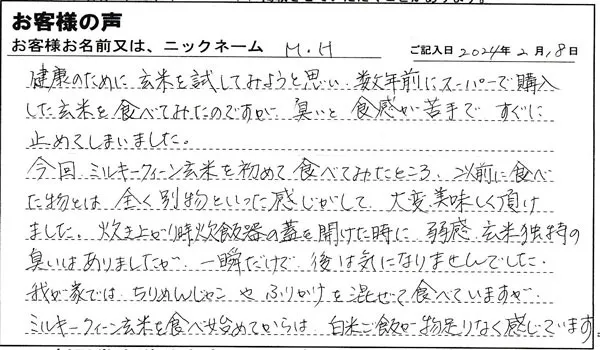 お客様の声
お客様お名前又は、ニックネーム M.H ご記入日 2024年2月18日
健康のために玄米を試してみようと思い 数年前にスーパーで購入
した玄米を食べてみたのですが 臭いと食感が苦手で すぐに
止めてしまいました。
今回 ミルキークィーン玄米を初めて食べてみたところ、以前に食べ
た物とは 全く別物といった感じがして、大変美味しく頂け
ました。炊き上がり時炊飯器の蓋を開けた時に 弱感 玄米独特の
臭いはありましたが、一瞬だけで 後は気になりませんでした。
我が家では ちりめんじゃこや ふりかけを混ぜて食べていますが
ミルキークィーン玄米を食べ始めてからは 白米ご飯が物足りなく感じています。